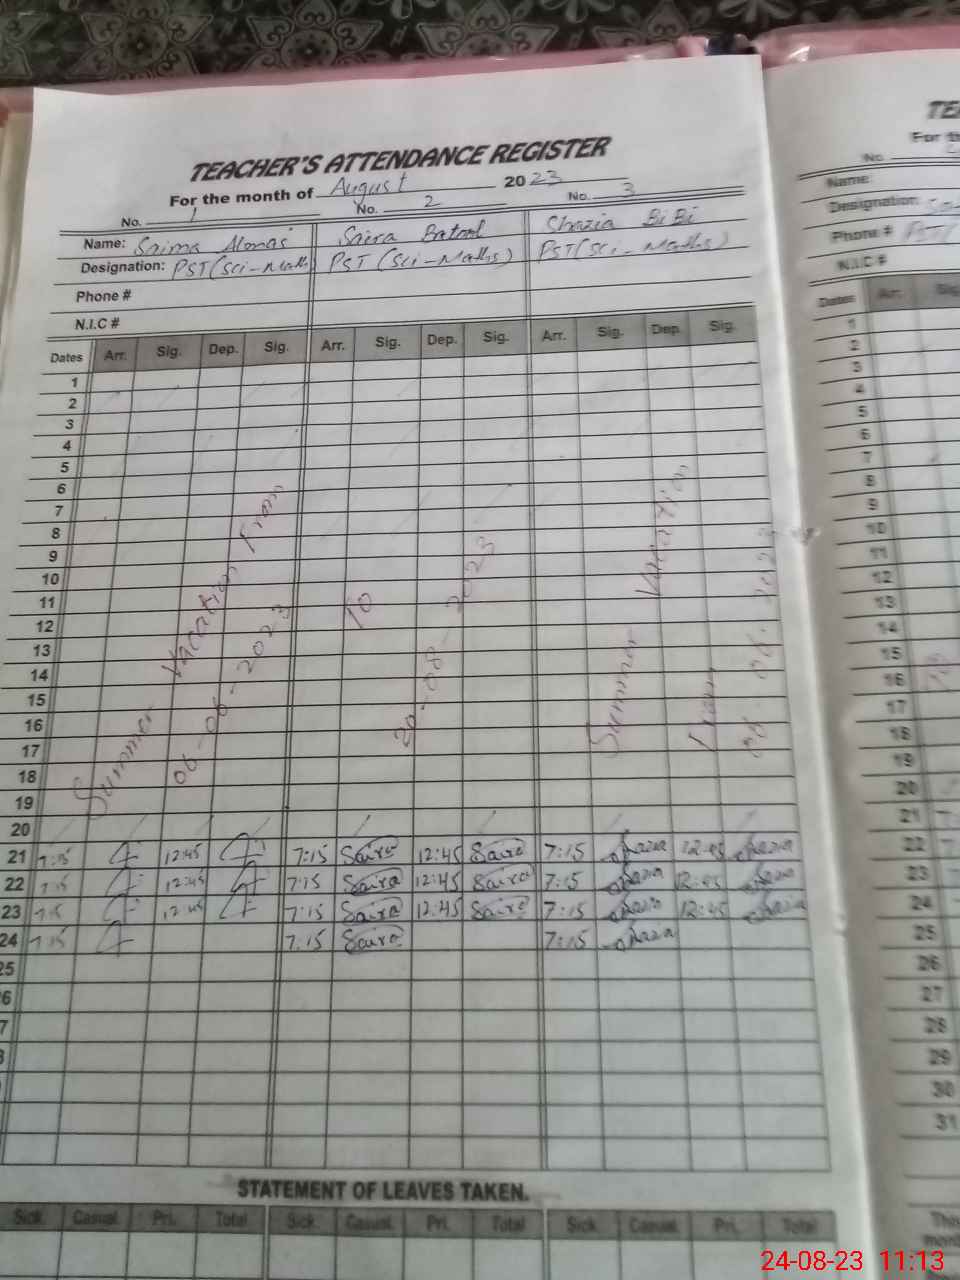 TEACHER'S ATTENDANCE REGISTER
For the month of August 2023
No. 1 No. 2 No. 3
Name: Saima Almas Saira Batool Shazia BiBi
Designation: PST (Sci-Math) PST (Sci-Maths) PST (Sci-Maths)
Phone #
N.I.C #
Dates Arr. Sig. Dep. Sig. Arr. Sig. Dep. Sig. Arr. Sig. Dep. Sig.
1
2
3
4
5
6
7
8
9
10
11
12
13
14
15
16
17
18
19
20
Summer Vacation From
06-06-2023
To
20-08-2023
Summer Vacation
From
06.06.2023
21 7:15 12:45 7:15 Saira 12:45 Saira 7:15 Shazia 12:45 Shazia
22 7:15 12:45 7:15 Saira 12:45 Saira 7:15 Shazia 12:45 Shazia
23 7:15 12:45 7:15 Saira 12:45 Saira 7:15 Shazia 12:45 Shazia
24 7:15 7:15 Saira 7:15 Shazia
25
6
7
STATEMENT OF LEAVES TAKEN.
Sick. Casual. Pri. Total Sick. Casual. Pri. Total Sick. Casual. Pri. Total
TE
For th
No.
Name:
Designation:
Phone #
N.I.C #
Dates Arr. Sig
1
2
3
4
5
6
7
8
9
10
11
12
13
14
15
16
17
18
19
20
21 7:
22 7
23
24
25
26
27
28
29
30
31
24-08-23 11:13